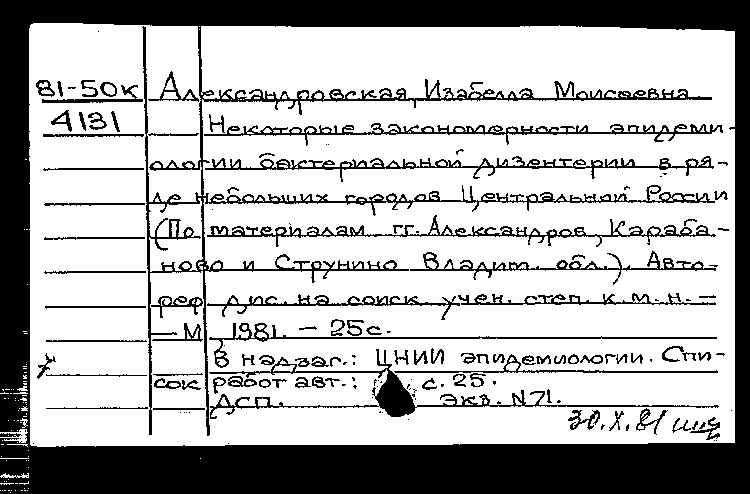 81-50к Александровская, Изабелла Моисеевна
4131 Некоторые закономерности эпидеми-
ологии бактериальной дизентерии в ря-
де небольших городов Центральной России
(По материалам гг. Александров, Караба-
ново и Струнино Владим. обл.). Авто-
реф. дис. на соиск. учен. степ. к.м.н. –
– М., 1981. – 25с.
В надзаг.: ЦНИИ эпидемиологии. Спи-
сок работ авт.: с. 25.
ДСП. Экз. N71.
30.X.81